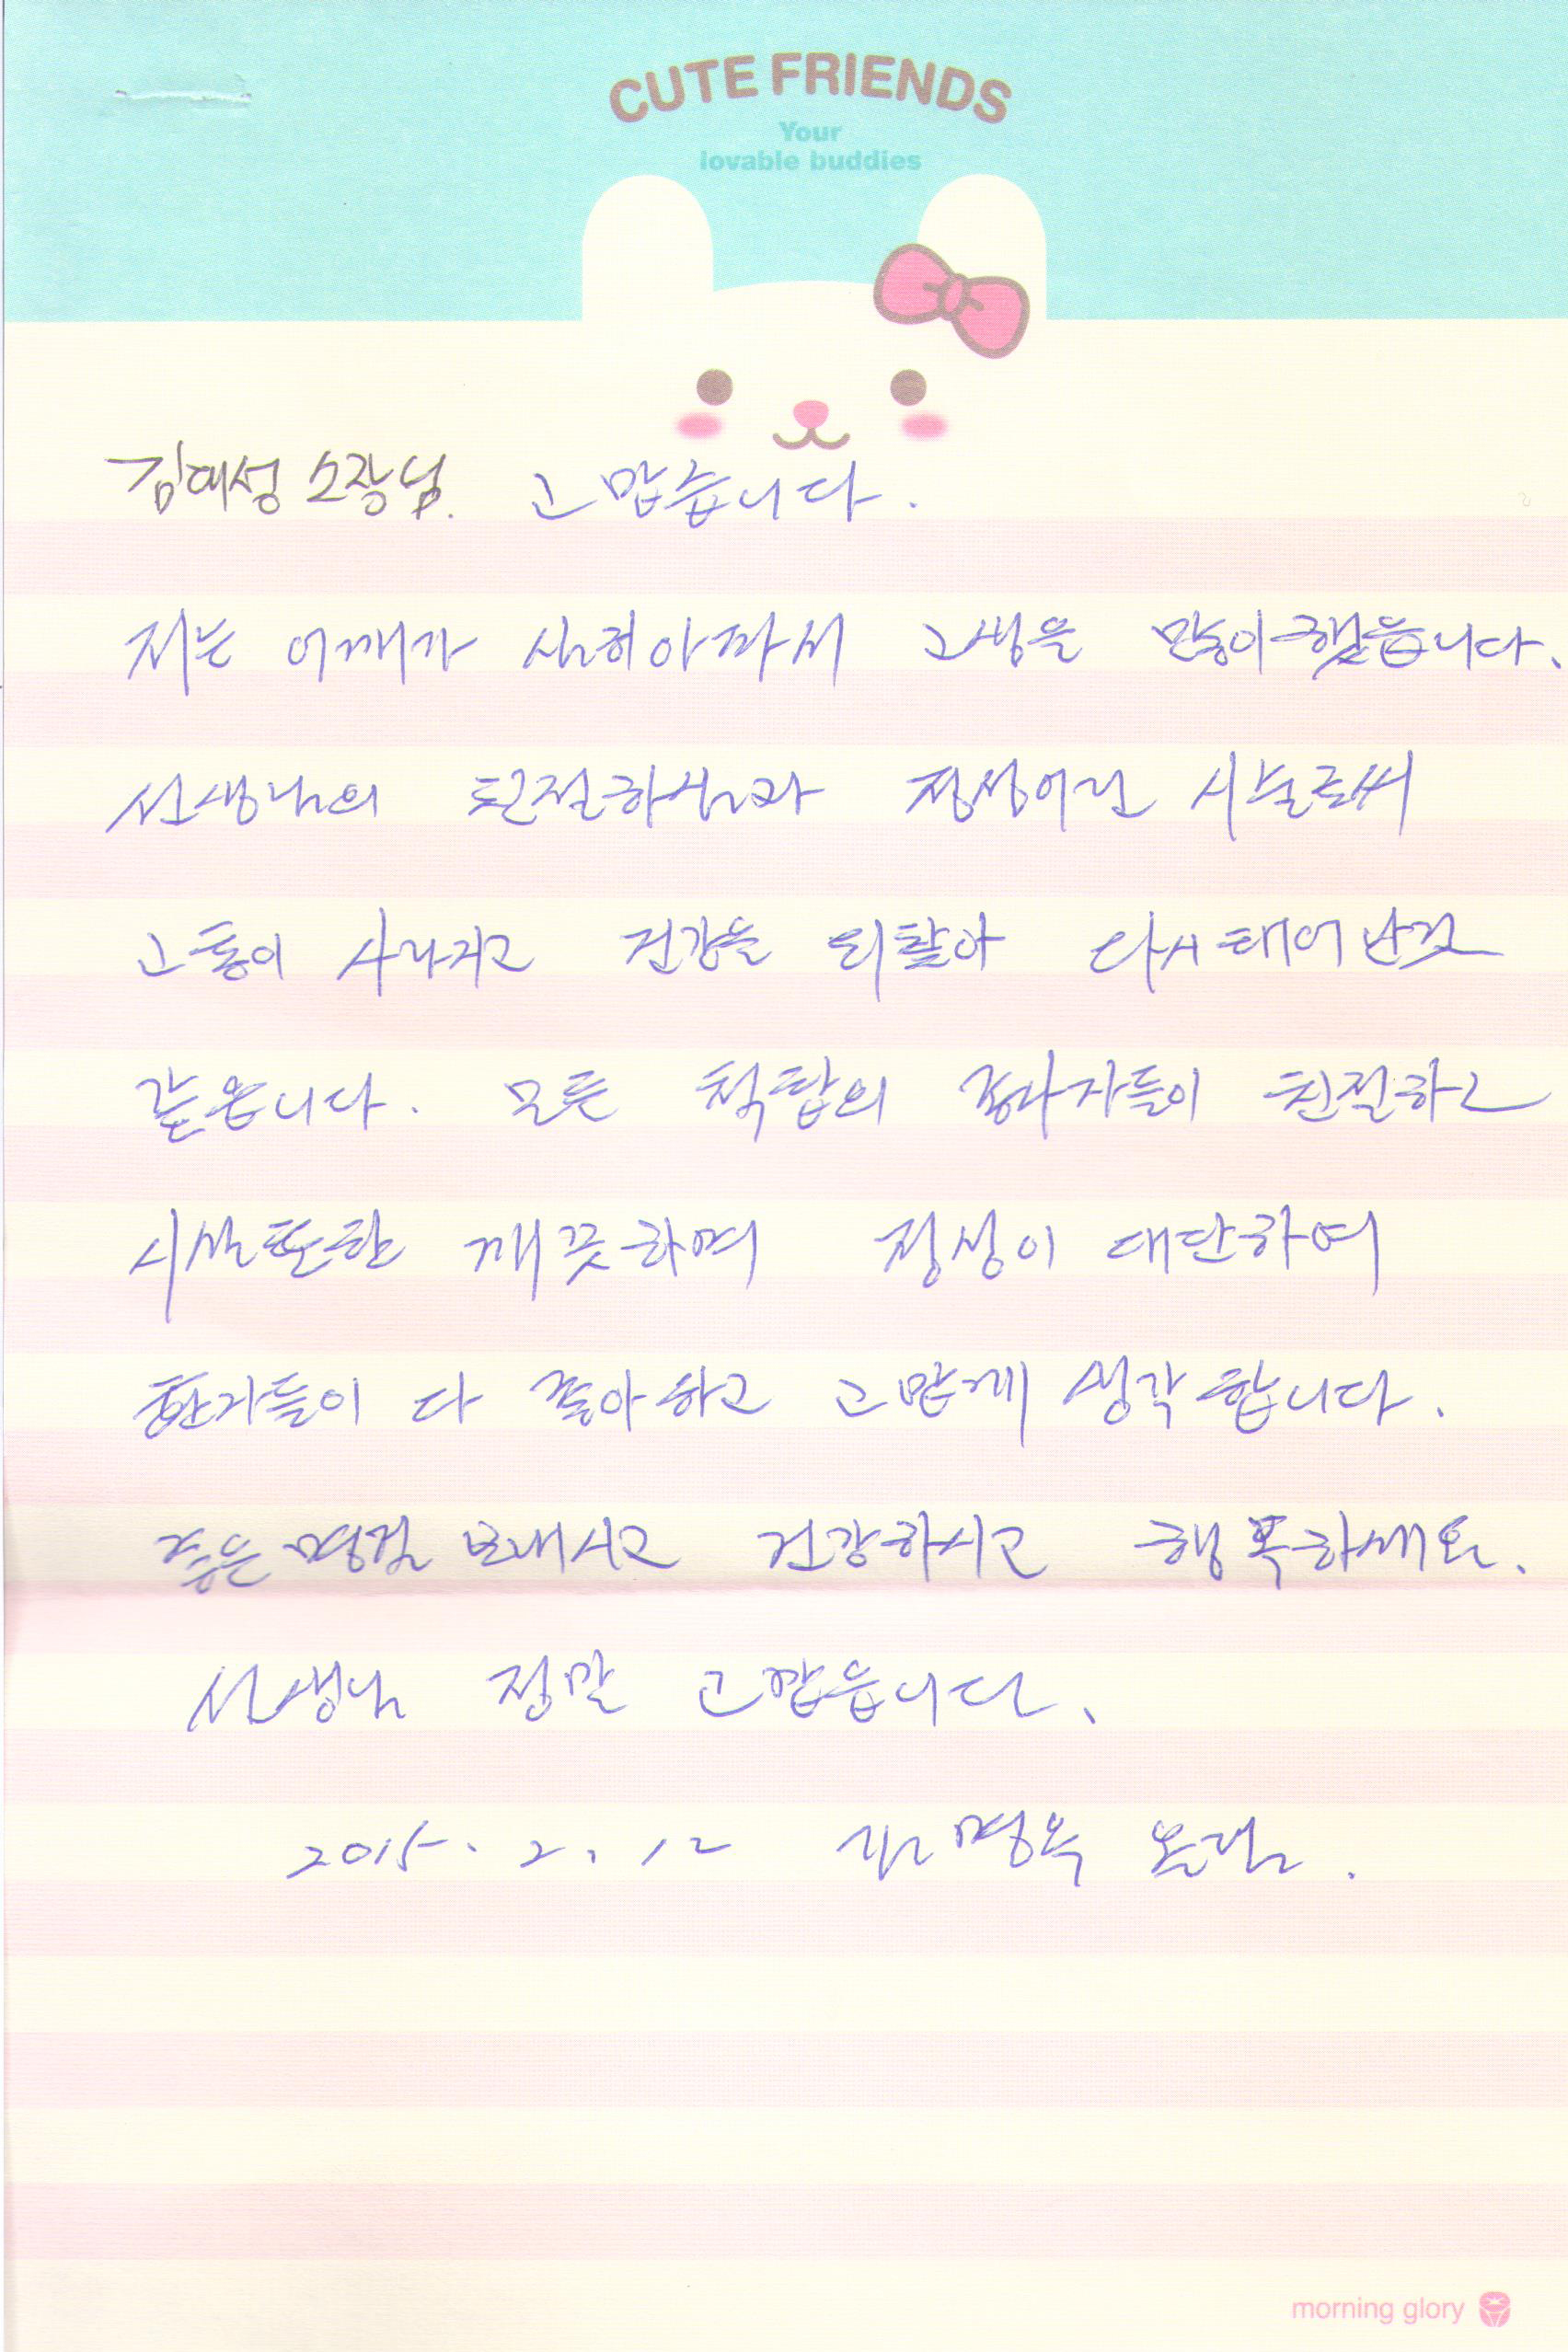 CUTE FRIENDS
Your
lovable buddies
김대성 소장님. 고맙습니다.
저는 어깨가 심히 아파서 고생을 많이 했읍니다.
선생님의 친절하심과 정성어린 시술로써
고통이 사라지고 건강을 되찾아 다시 태어난것
같읍니다. 모든 척탑의 종사자들이 친절하고
시설 또한 깨끗하며 정성이 대단하여
환자들이 다 좋아하고 고맙게 생각합니다.
좋은 명절 보내시고 건강하시고 행복하세요.
선생님 정말 고맙읍니다.
2015. 2. 12 명옥 올림.
morning glory